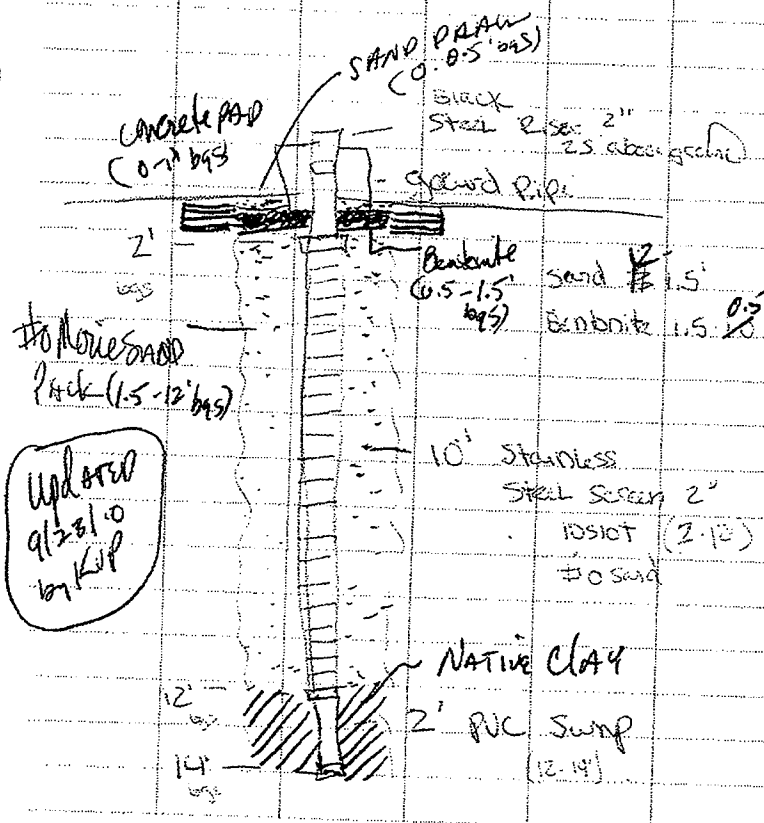 SAND DRAIN
(0-0.5' bgs)
Black
Steel Riser 2"
2.5 above ground
Concrete PAD
(0-1' bgs)
guard pipe
2'
bgs
Bentonite
(0.5-1.5'
bgs)
Sand 12 1.5'
Bentonite 1.5 0.5
#0 Morie SAND
Pack (1.5-12' bgs)
10' Stainless
Steel Screen 2"
10 SLOT (2-12)
#0 Sand
UpdATED
by KJP
NATIVE ClAY
12'
bgs
2' PVC Sump
(12-14')
14'
bgs